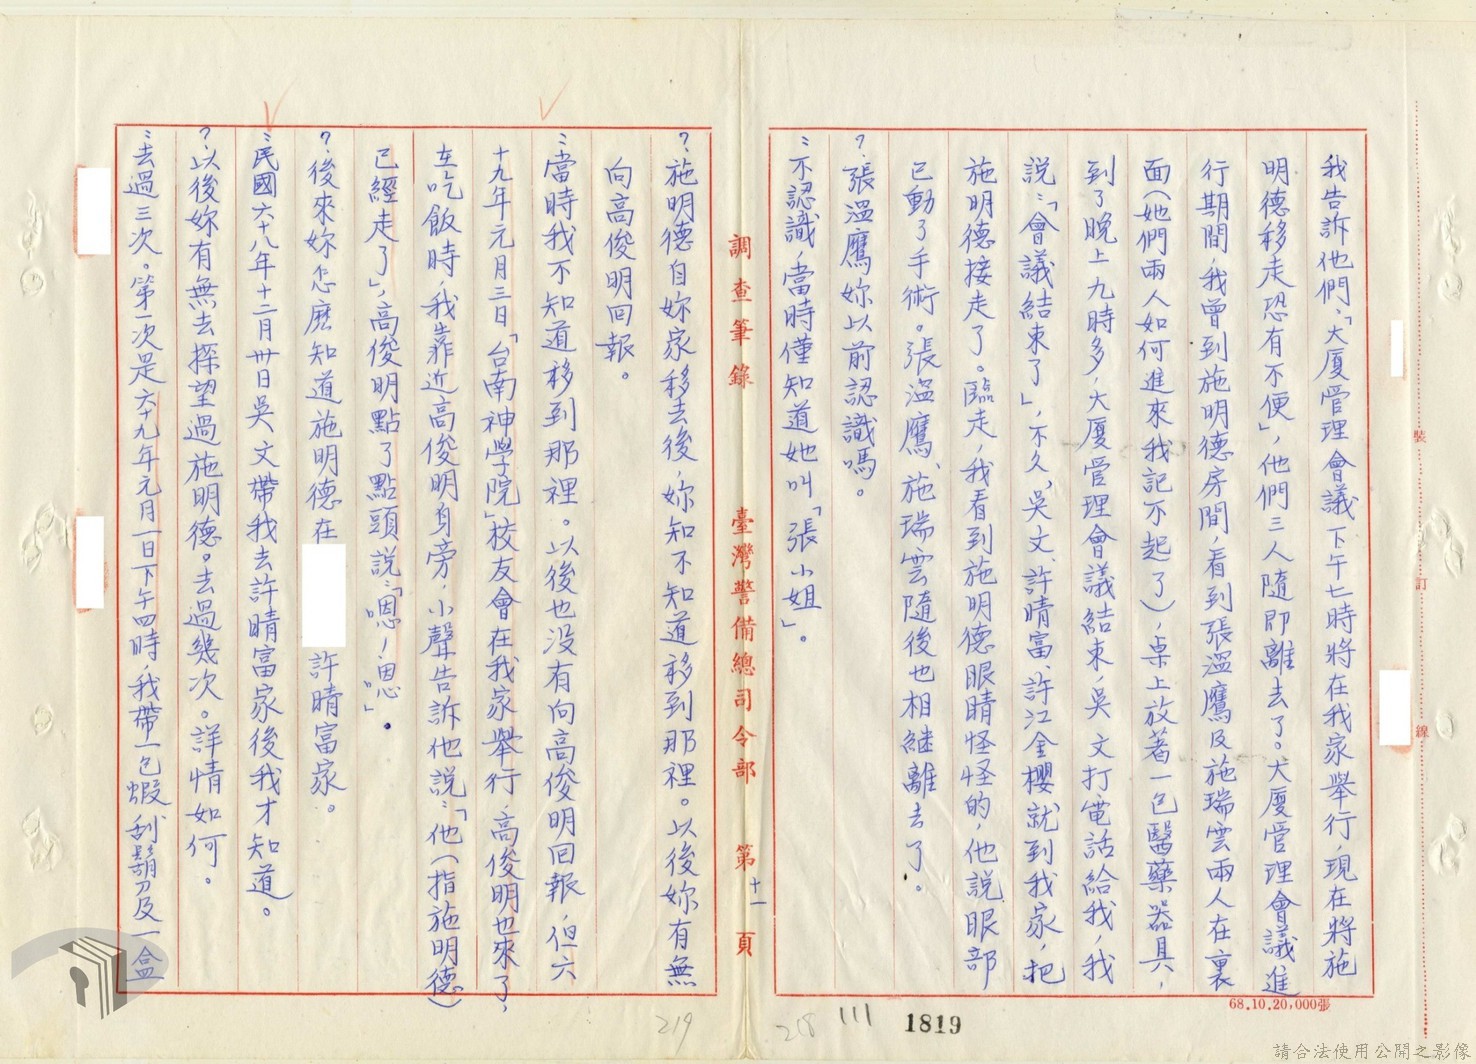 我告訴他們、「大厦管理會議下午七時將在我家舉行，現在將施
明德移走恐有不便」，他們三人隨即離去了。大厦管理會議進
行期間，我曾到施明德房間，看到張溫鷹及施瑞雲兩人在裏
面（她們兩人如何進來我記不起了），桌上放著一包醫藥器具，
到了晚上九時多，大厦管理會議結束，吳文打電話給我，我
說：「會議結束了」，不久、吳文、許晴富、許江金櫻就到我家，把
施明德接走了。臨走，我看到施明德眼睛怪怪的，他說眼部
已動了手術。張溫鷹、施瑞雲隨後也相繼離去了。
？：張溫鷹妳以前認識嗎。
：不認識，當時僅知道她叫「張小姐」。
調查筆錄 臺灣警備總司令部 第十一頁
？：施明德自妳家移去後，妳知不知道移到那裡。以後妳有無
向高俊明回報。
：當時我不知道移到那裡。以後也没有向高俊明回報，但六
十九年元月三日「台南神學院」校友會在我家舉行，高俊明也來了，
在吃飯時，我靠近高俊明身旁，小聲告訴他說：「他（指施明德）
已經走了」，高俊明點了點頭說：「嗯！嗯」。
？：後來妳怎麽知道施明德在 許晴富家。
：民國六十八年十二月卅日吳文帶我去許晴富家後我才知道。
？：以後妳有無去探望過施明德。去過幾次。詳情如何。
：去過三次。第一次是六十九年元月一日下午四時，我帶一包蝦、刮鬍刀及一盒
裝
訂
線
68.10.20,000張
219
218
111
1819
請合法使用公開之影像